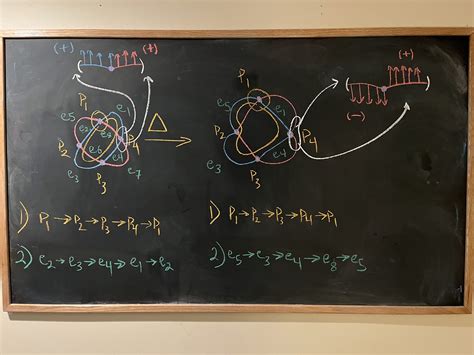 (+) (+)
P₁
e₅ e₁
e₂ e₈
P₂ e₆ P₄
e₄
e₃ P₃ e₇
Δ
(+)
(-)
P₁
e₅ e₁
P₂ P₄
e₃ P₃ e₄
1) P₁→P₂→P₃→P₄→P₁
2) e₂→e₃→e₄→e₁→e₂
1) P₁→P₂→P₃→P₄→P₁
2) e₅→e₃→e₄→e₈→e₅